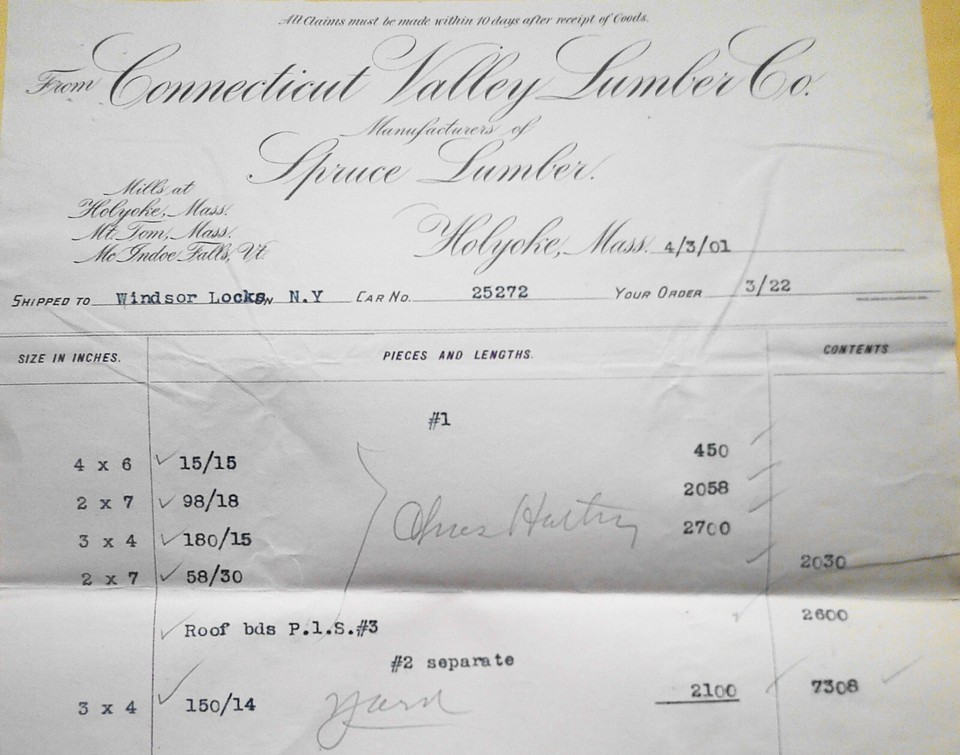 All Claims must be made within 10 days after receipt of Goods.
From Connecticut Valley Lumber Co.
Manufacturers of
Spruce Lumber.
Mills at
Holyoke, Mass.
Mt. Tom, Mass.
Mc Indoe Falls, Vt.
Holyoke, Mass. 4/3/01
SHIPPED TO Windsor Locks, N.Y CAR NO. 25272 YOUR ORDER 3/22
SIZE IN INCHES. PIECES AND LENGTHS. CONTENTS
#1
4 x 6 15/15 450
2 x 7 98/18 2058
3 x 4 180/15 2700
2 x 7 58/30 2030
Roof bds P.l.S.#3 2600
#2 separate
3 x 4 150/14 Yard 2100 7308